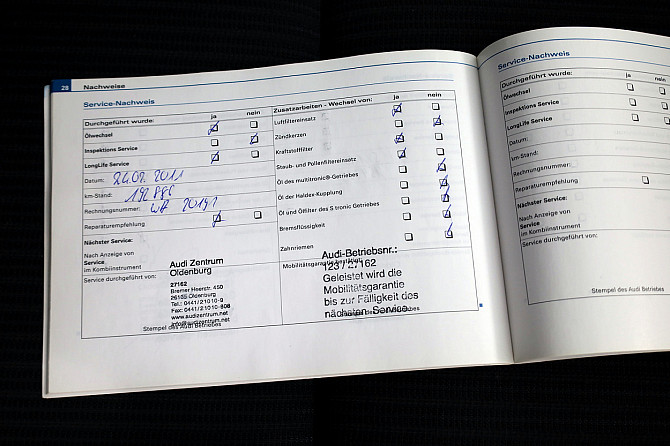 28 Nachweise
Service-Nachweis
Durchgeführt wurde: ja nein
Ölwechsel
Inspektions Service
LongLife Service
Datum: 24.02.2011
km-Stand:
Rechnungsnummer:
Reparaturempfehlung
Nächster Service:
Nach Anzeige von
Service
im Kombiinstrument
Service durchgeführt von:
Audi Zentrum
Oldenburg
27162
Bremer Heerstr. 450
26135 Oldenburg
Tel.: 0441/21010-0
Fax: 0441/21010-808
www.audizentrum.net
info@audizentrum.net
Stempel des Audi Betriebes
Zusatzarbeiten - Wechsel von: ja nein
Luftfiltereinsatz
Zündkerzen
Kraftstofffilter
Staub- und Pollenfiltereinsatz
Öl des multitronic®-Getriebes
Öl der Haldex-Kupplung
Öl und Ölfilter des S tronic Getriebes
Bremsflüssigkeit
Zahnriemen
Mobilitätsgarantie
Audi-Betriebsnr.:
123 / 27162
Geleistet wird die
Mobilitätsgarantie
bis zur Fälligkeit des
nächsten Service.
Stempel des Audi Betriebes
Service-Nachweis
Durchgeführt wurde: ja nein
Ölwechsel
Inspektions Service
LongLife Service
Datum:
km-Stand:
Rechnungsnummer:
Reparaturempfehlung
Nächster Service:
Nach Anzeige von
Service
im Kombiinstrument
Service durchgeführt von:
Stempel des Audi Betriebes